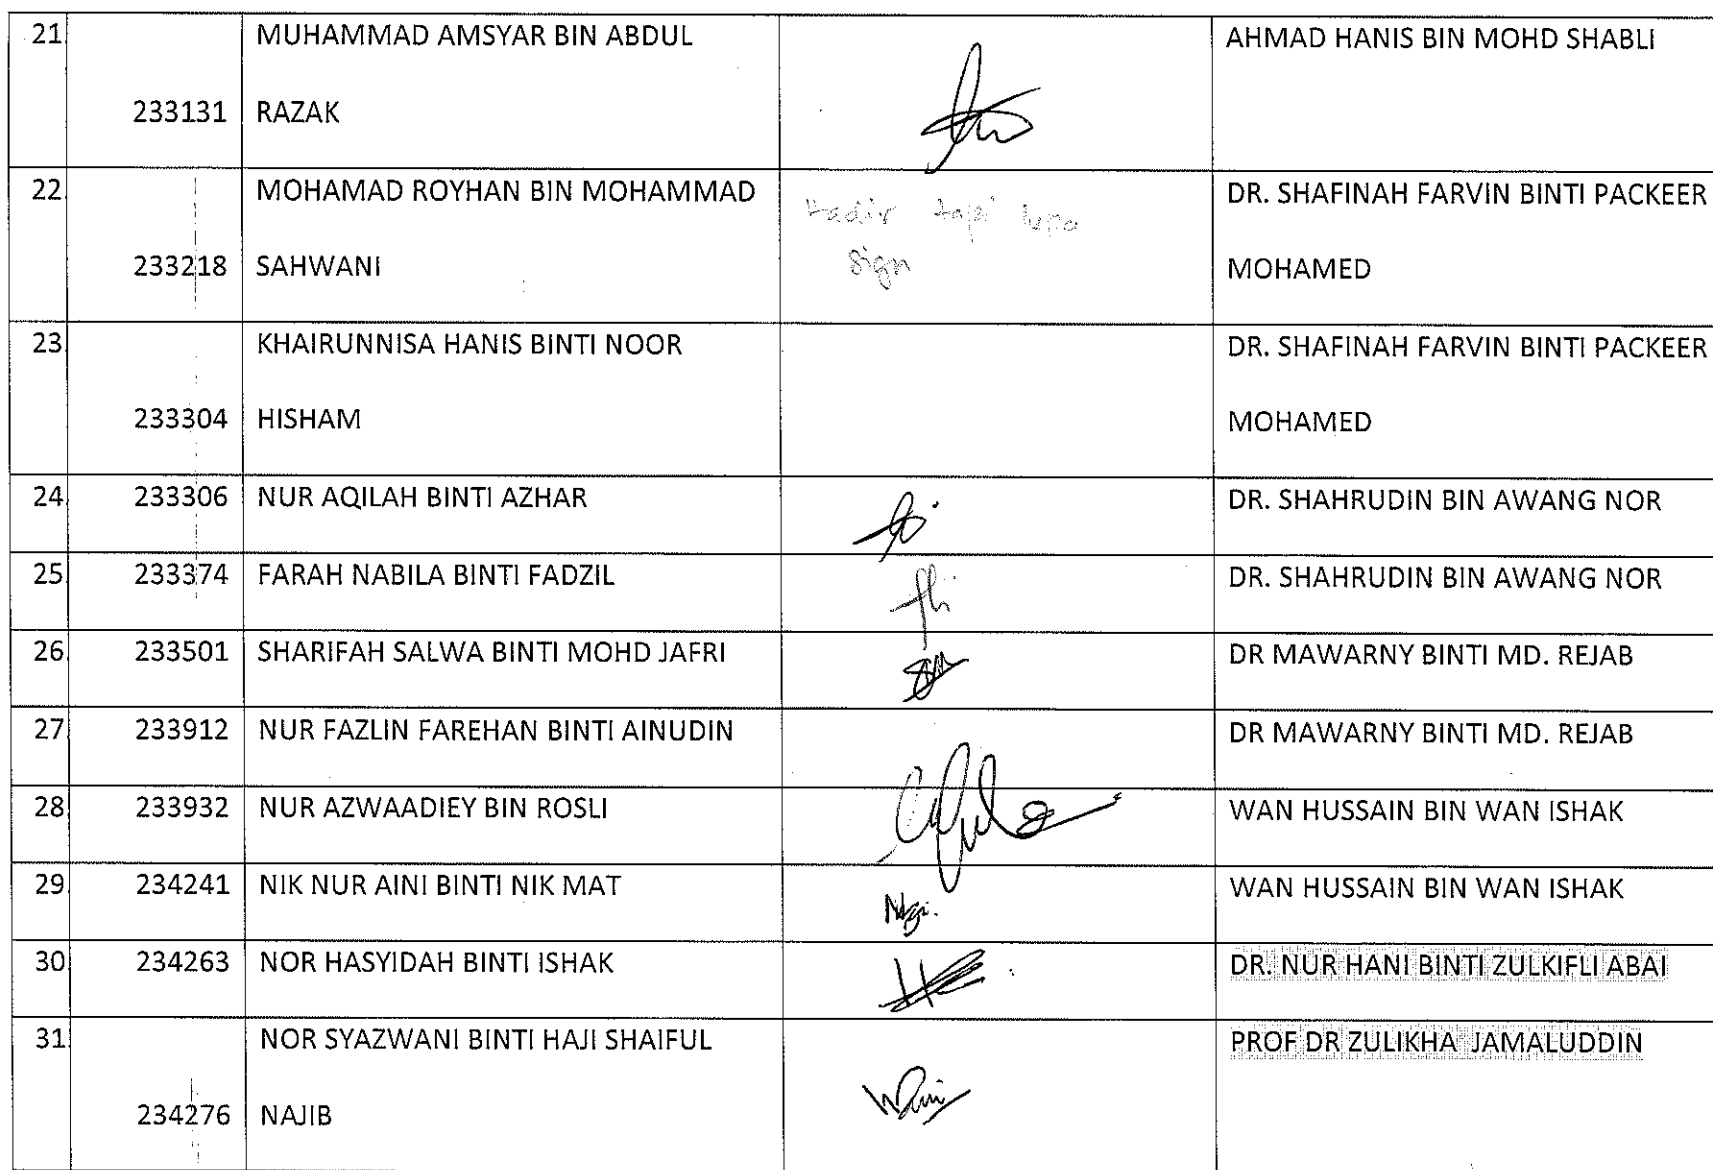 21 MUHAMMAD AMSYAR BIN ABDUL AHMAD HANIS BIN MOHD SHABLI
233131 RAZAK
22 MOHAMAD ROYHAN BIN MOHAMMAD Hadir tapi lupa DR. SHAFINAH FARVIN BINTI PACKEER
233218 SAHWANI sign MOHAMED
23 KHAIRUNNISA HANIS BINTI NOOR DR. SHAFINAH FARVIN BINTI PACKEER
233304 HISHAM MOHAMED
24 233306 NUR AQILAH BINTI AZHAR DR. SHAHRUDIN BIN AWANG NOR
25 233374 FARAH NABILA BINTI FADZIL DR. SHAHRUDIN BIN AWANG NOR
26 233501 SHARIFAH SALWA BINTI MOHD JAFRI DR MAWARNY BINTI MD. REJAB
27 233912 NUR FAZLIN FAREHAN BINTI AINUDIN DR MAWARNY BINTI MD. REJAB
28 233932 NUR AZWAADIEY BIN ROSLI WAN HUSSAIN BIN WAN ISHAK
29 234241 NIK NUR AINI BINTI NIK MAT WAN HUSSAIN BIN WAN ISHAK
30 234263 NOR HASYIDAH BINTI ISHAK DR. NUR HANI BINTI ZULKIFLI ABAI
31 NOR SYAZWANI BINTI HAJI SHAIFUL PROF DR ZULIKHA JAMALUDDIN
234276 NAJIB